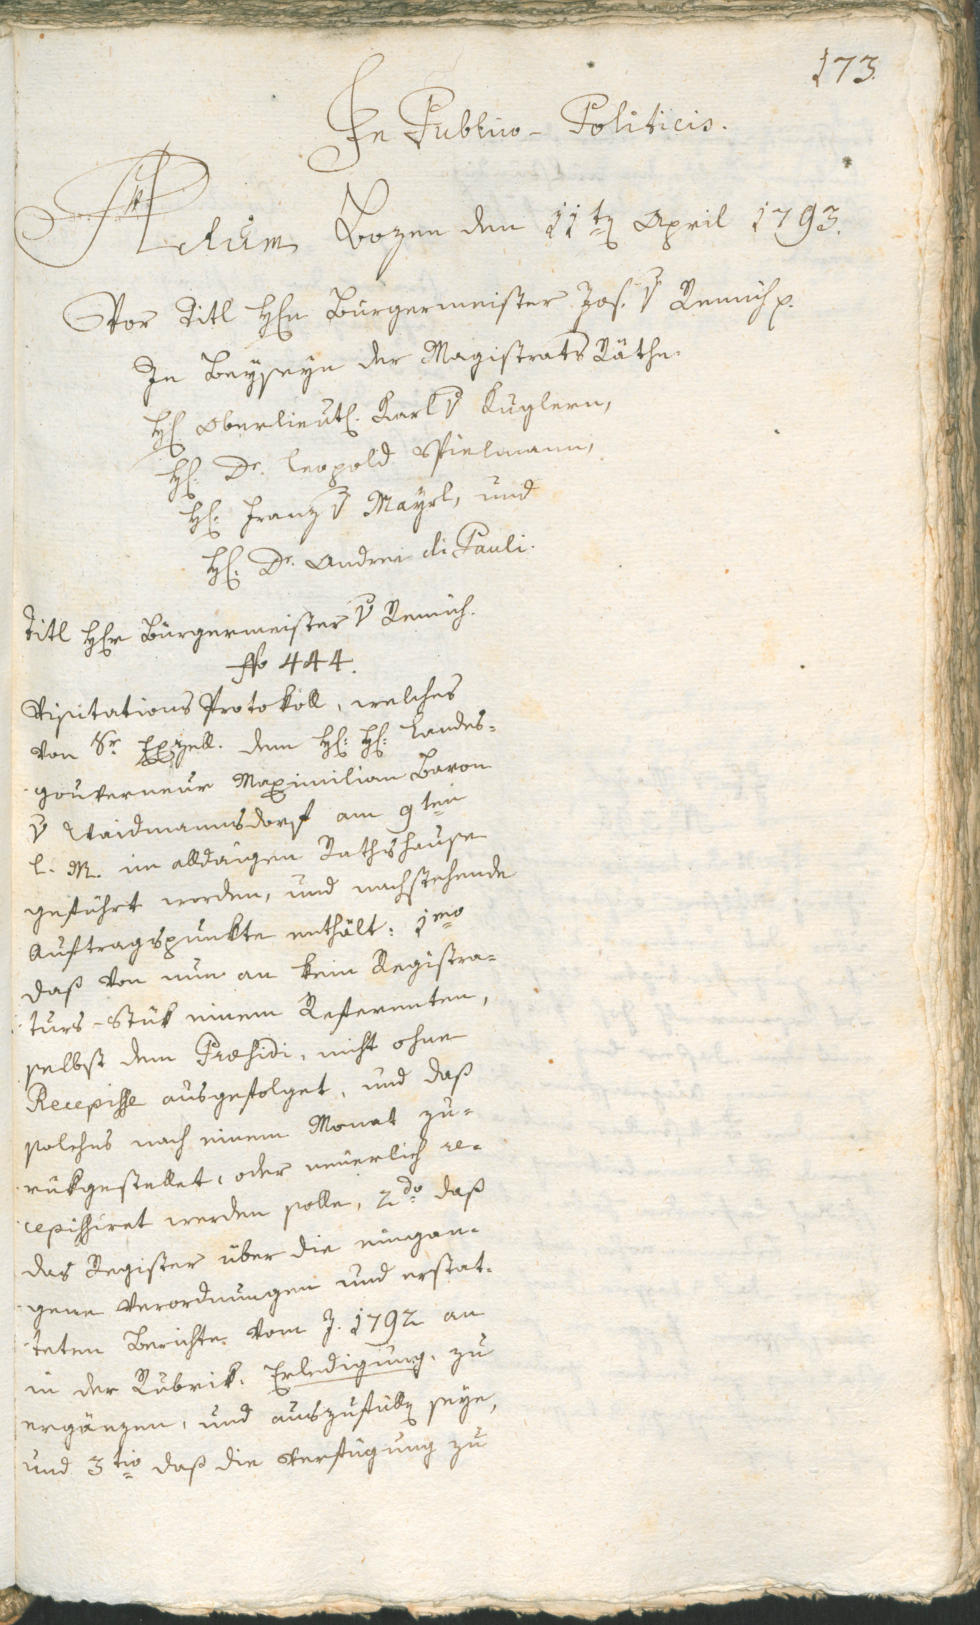 173.
In Publico-Politicis.
Actum Bozen den 11t. April 1793.
Vor Titl H. Bürgermeister Jos. v Remich p.
In Beyseyn der Magistrats Räthe.
H. Oberlieut. Karl v Kuglern,
H. Dr. Leopold Spielmann,
H. Franz v Mayrl, und
H. Dr. Andrei di Pauli.
Titl Hr Bürgermeister v Remich.
No 444.
Visitations Protokoll, welches
von Sr. Exzell. dem H. H. Landes-
gouverneur Maximilian Baron
v Waidmannsdorf am 9ten
l. M. im alldaigen Rathshause
geführt worden, und nachstehende
Auftragspunkte enthält: 1mo
daß von nun an kein Registra-
turs-Stük einem Referenten,
selbst dem Præsidi, nicht ohne
Recepisse ausgefolget, und daß
solches nach einem Monat zu-
rükgestellet, oder neuerlich re-
cepissiret werden solle, 2do daß
das Register über die eingan-
gene Verordnungen und erstat-
teten Berichte vom J. 1792 an
in der Rubrik. Erledigung. zu
ergänzen, und auszufüllen seye,
und 3tio daß die Verfügung zu